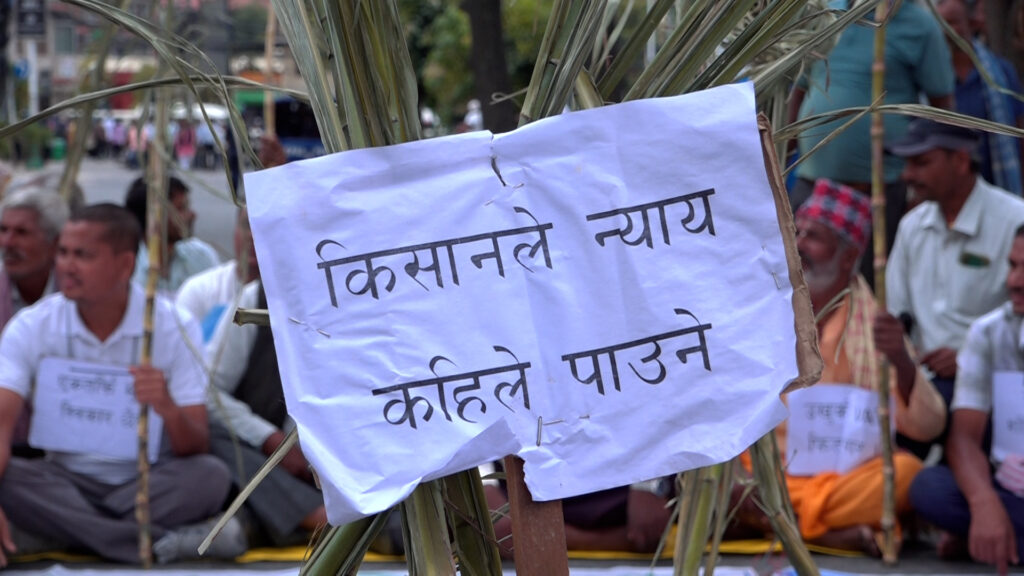 किसानले न्याय
कहिले पाउने